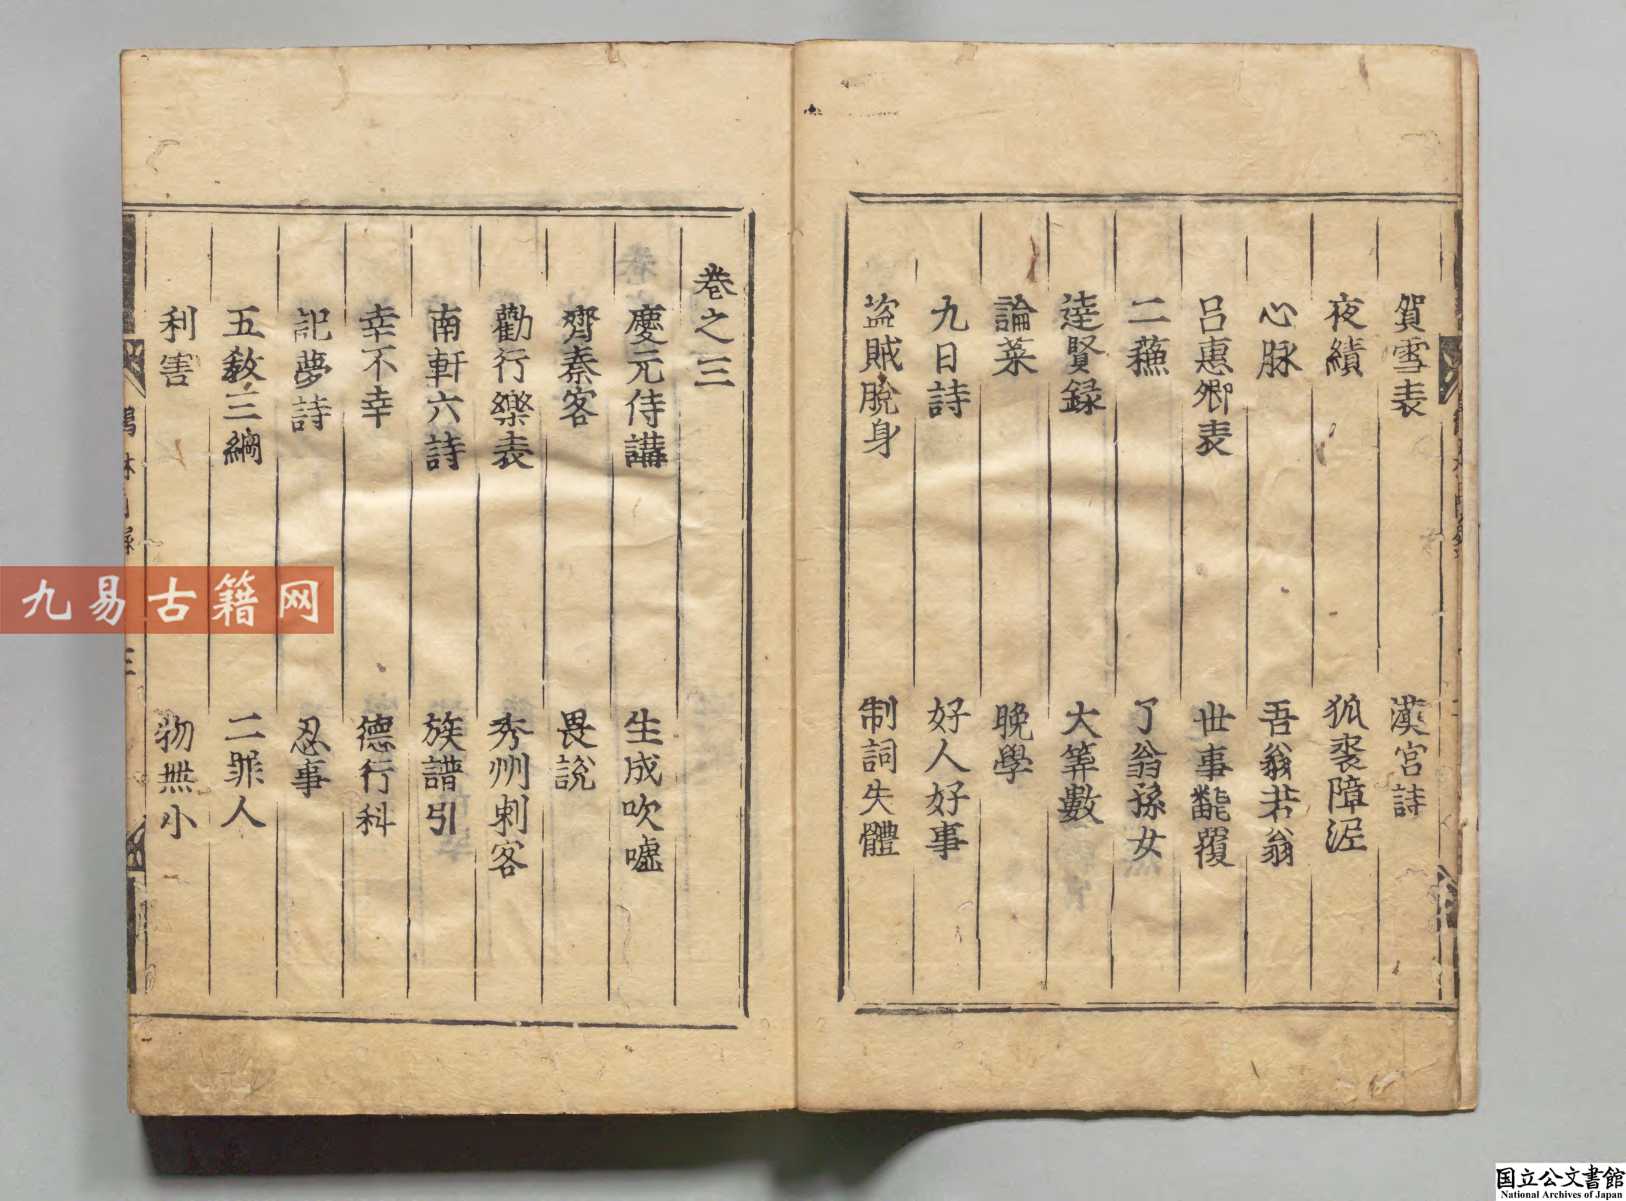 賀雪表
漢宮詩
夜績
狐裘障泥
心脉
吾翁若翁
吕惠卿表
世事翻覆
二蘓
了翁孫女
逹賢録
大筭數
論菜
晚學
九日詩
好人好事
盜賊脫身
制詞失體
卷之三
慶元侍講
生成吹噓
齊秦客
畏說
勸行樂表
秀州刺客
南軒六詩
族譜引
幸不幸
德行科
記夢詩
忍事
五教三綱
二罪人
利害
物無小
三
九易古籍网
国立公文書館
National Archives of Japan